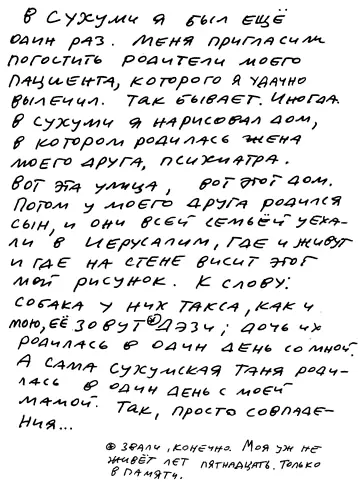 В СУХУМИ Я БЫЛ ЕЩЁ
ОДИН РАЗ. МЕНЯ ПРИГЛАСИЛИ
ПОГОСТИТЬ РОДИТЕЛИ МОЕГО
ПАЦИЕНТА, КОТОРОГО Я УДАЧНО
ВЫЛЕЧИЛ. ТАК БЫВАЕТ. ИНОГДА.
В СУХУМИ Я НАРИСОВАЛ ДОМ,
В КОТОРОМ РОДИЛАСЬ ЖЕНА
МОЕГО ДРУГА, ПСИХИАТРА.
ВОТ ЭТА УЛИЦА, ВОТ ЭТОТ ДОМ.
ПОТОМ У МОЕГО ДРУГА РОДИЛСЯ
СЫН, И ОНИ ВСЕЙ СЕМЬЁЙ УЕХА-
ЛИ В ИЕРУСАЛИМ, ГДЕ И ЖИВУТ
И ГДЕ НА СТЕНЕ ВИСИТ ЭТОТ
МОЙ РИСУНОК. К СЛОВУ:
СОБАКА У НИХ ТАКСА, КАК И
МОЮ, ЕЁ ЗОВУТ* ДЭЗИ; ДОЧЬ ИХ
РОДИЛАСЬ В ОДИН ДЕНЬ СО МНОЙ.
А САМА СУХУМСКАЯ ТАНЯ РОДИ-
ЛАСЬ В ОДИН ДЕНЬ С МОЕЙ
МАМОЙ. ТАК, ПРОСТО СОВПАДЕ-
НИЯ...
* ЗВАЛИ, КОНЕЧНО. МОЯ УЖ НЕ
ЖИВЁТ ЛЕТ ПЯТНАДЦАТЬ. ТОЛЬКО
В ПАМЯТИ.